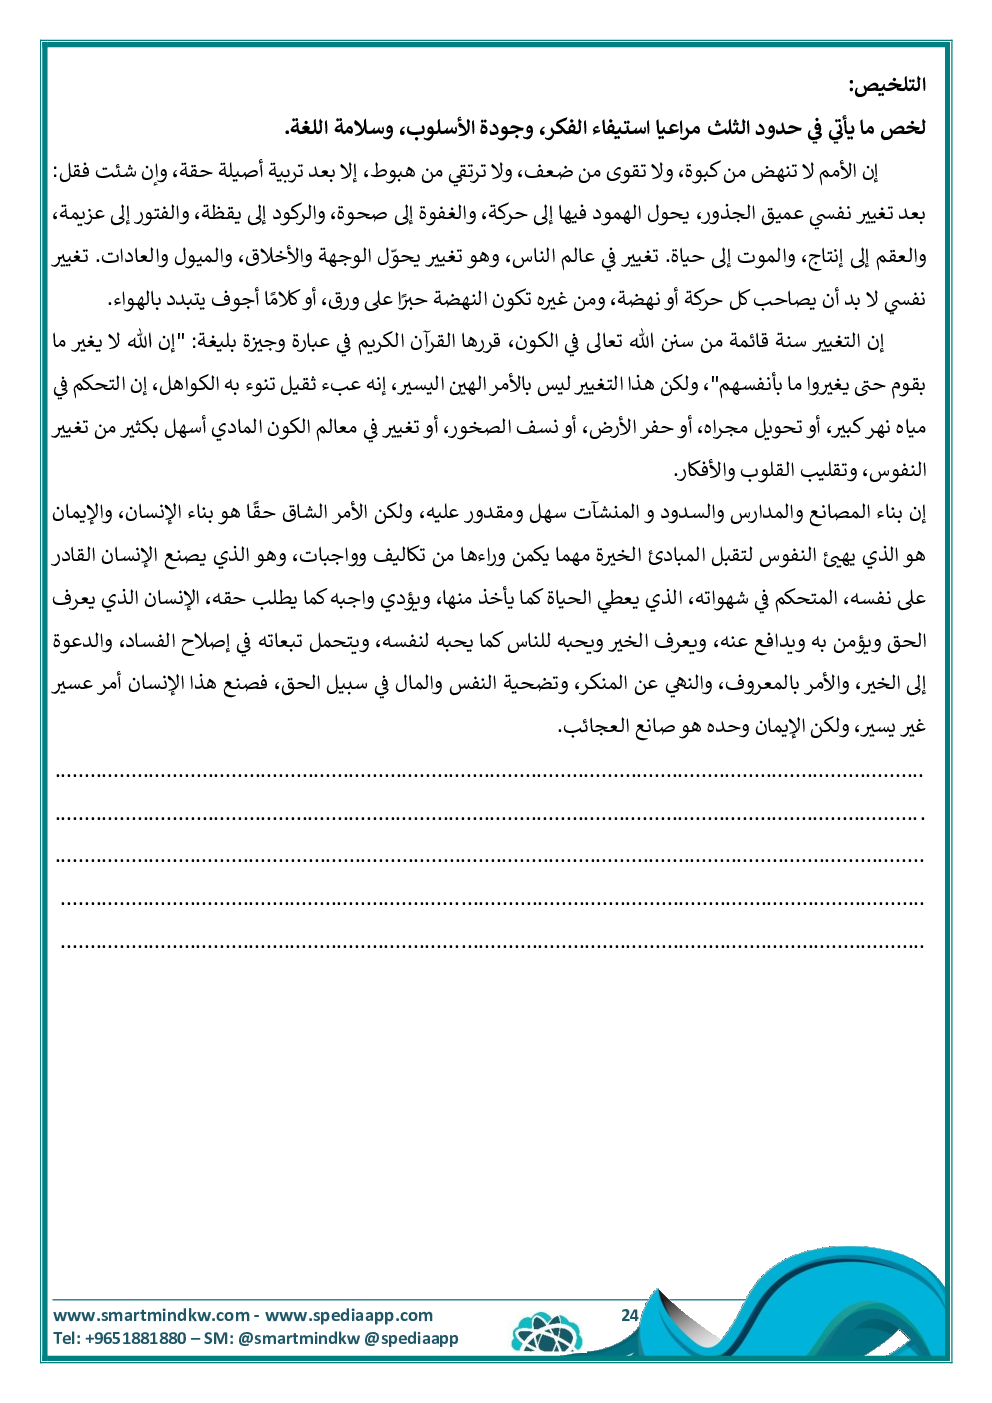 التلخيص:
لخص ما يأتي في حدود الثلث مراعيا استيفاء الفكر، وجودة الأسلوب، وسلامة اللغة.
إن الأمم لا تنهض من كبوة، ولا تقوى من ضعف، ولا ترتقي من هبوط، إلا بعد تربية أصيلة حقة، وإن شئت فقل:
بعد تغيير نفسي عميق الجذور، يحول الهمود فيها إلى حركة، والغفوة إلى صحوة، والركود إلى يقظة، والفتور إلى عزيمة،
والعقم إلى إنتاج، والموت إلى حياة. تغيير في عالم الناس، وهو تغيير يحوّل الوجهة والأخلاق، والميول والعادات. تغيير
نفسي لا بد أن يصاحب كل حركة أو نهضة، ومن غيره تكون النهضة حبرًا على ورق، أو كلامًا أجوف يتبدد بالهواء.
إن التغيير سنة قائمة من سنن الله تعالى في الكون، قررها القرآن الكريم في عبارة وجيزة بليغة: "إن الله لا يغير ما
بقوم حتى يغيروا ما بأنفسهم"، ولكن هذا التغيير ليس بالأمر الهين اليسير، إنه عبء ثقيل تنوء به الكواهل، إن التحكم في
مياه نهر كبير، أو تحويل مجراه، أو حفر الأرض، أو نسف الصخور، أو تغيير في معالم الكون المادي أسهل بكثير من تغيير
النفوس، وتقليب القلوب والأفكار.
إن بناء المصانع والمدارس والسدود و المنشآت سهل ومقدور عليه، ولكن الأمر الشاق حقًا هو بناء الإنسان، والإيمان
هو الذي يهيئ النفوس لتقبل المبادئ الخيرة مهما يكمن وراءها من تكاليف وواجبات، وهو الذي يصنع الإنسان القادر
على نفسه، المتحكم في شهواته، الذي يعطي الحياة كما يأخذ منها، ويؤدي واجبه كما يطلب حقه، الإنسان الذي يعرف
الحق ويؤمن به ويدافع عنه، ويعرف الخير ويحبه للناس كما يحبه لنفسه، ويتحمل تبعاته في إصلاح الفساد، والدعوة
إلى الخير، والأمر بالمعروف، والنهي عن المنكر، وتضحية النفس والمال في سبيل الحق، فصنع هذا الإنسان أمر عسير
غير يسير، ولكن الإيمان وحده هو صانع العجائب.
www.smartmindkw.com - www.spediaapp.com
24
Tel: +9651881880 – SM: @smartmindkw @spediaapp